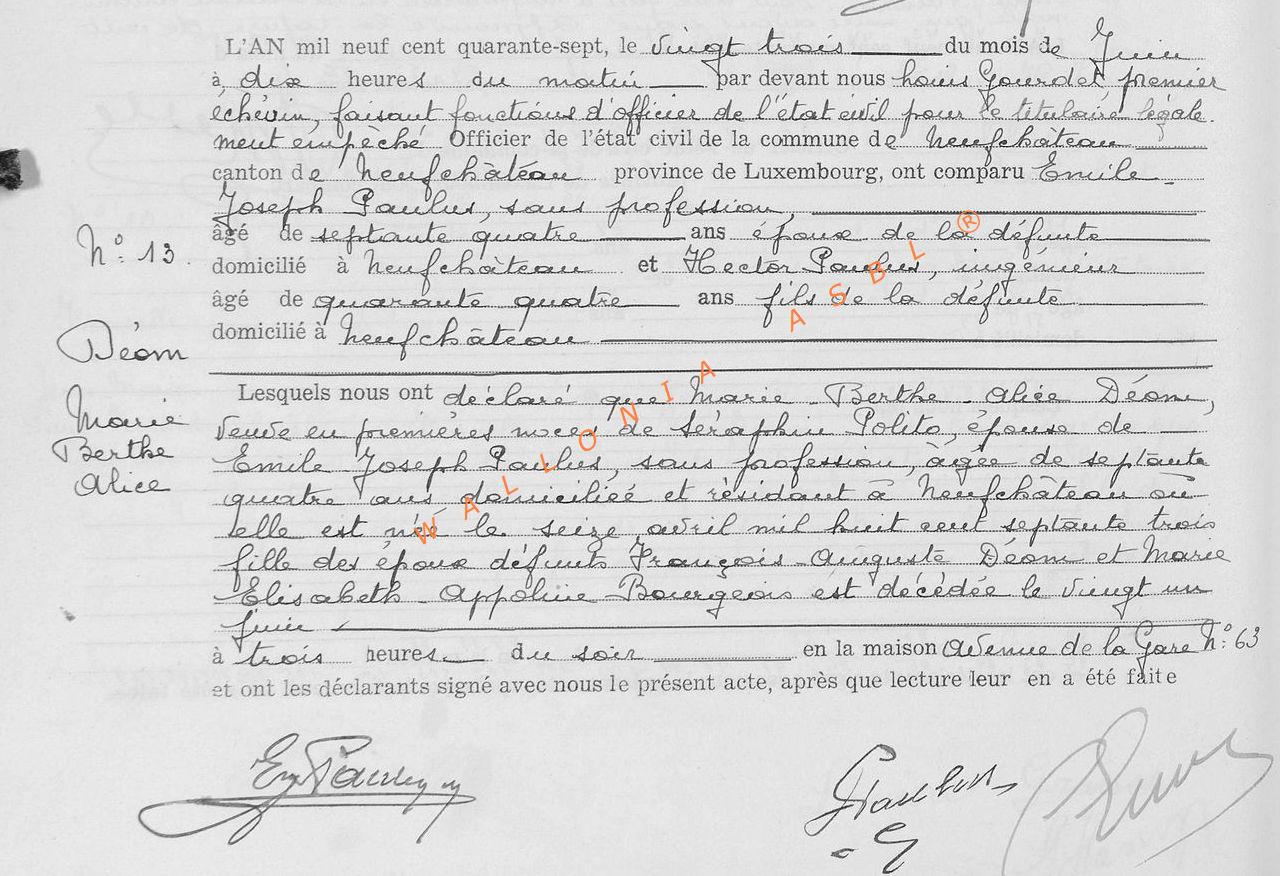 L'AN mil neuf cent quarante-sept, le vingt trois du mois de Juin
à dix heures du matin par devant nous Louis Gourdet, premier
échevin, faisant fonctions d'officier de l'état civil pour le titulaire légale-
ment empêché Officier de l'état civil de la commune de Neufchâteau
canton de Neufchâteau province de Luxembourg, ont comparu Emile
Joseph Paulus, sans profession,
âgé de septante quatre ans époux de la défunte
N° 13.
domicilié à Neufchâteau et Hector Paulus, ingénieur
âgé de quarante quatre ans fils de la défunte
domicilié à Neufchâteau
Déom
Marie
Berthe
Alice
Lesquels nous ont déclaré que Marie-Berthe-Alice Déom,
veuve en premières noces de Séraphin Polito, épouse de
Emile Joseph Paulus, sans profession, âgée de septante
quatre ans domiciliée et résidant à Neufchâteau où
elle est née le seize avril mil huit cent septante trois
fille des époux défunts François-Auguste Déom et Marie
Elisabeth-Appoline Bourgeois est décédée le vingt un
juin
à trois heures du soir en la maison avenue de la Gare N° 63
et ont les déclarants signé avec nous le présent acte, après que lecture leur en a été faite
WALLONIA ASBL ®